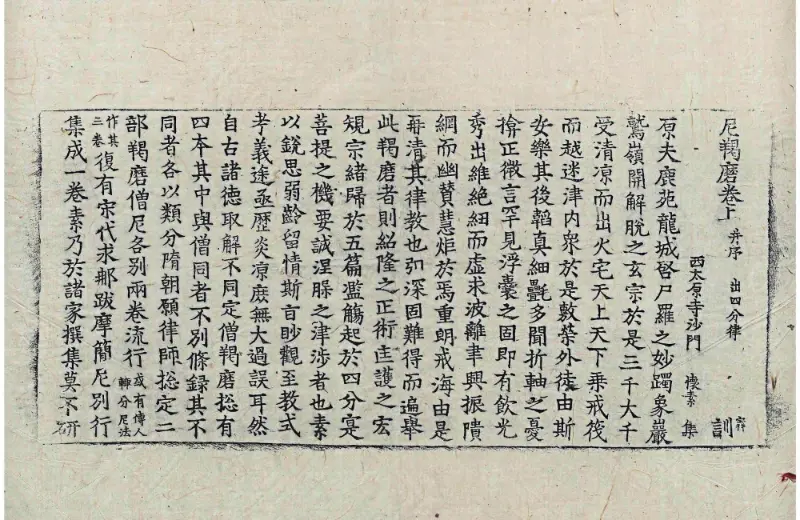 尼羯磨卷上 并序 出四分律
西太原寺沙門 懷素 集
訓
原夫鹿苑龍城啓尸羅之妙躅象巖
鷲嶺開解脫之玄宗於是三千大千
受清凉而出火宅天上天下乗戒筏
而越迷津内衆於是敷榮外徒由斯
安樂其後韜真細㲲多聞折軸之憂
揜正微言罕見浮囊之固即有飲光
秀出維絶紐而虛求波離聿興振隤
綱而幽賛慧炬於焉重朗戒海由是
再清其律教也弘深固難得而遍舉
此羯磨者則紹隆之正術匡護之宏
規宗緒歸於五篇濫觴起於四分寔
菩提之機要誠涅槃之津涉者也素
以銳思弱齡留情斯旨眇觀至教式
考義途亟歷炎凉庻無大過誤耳然
自古諸德取解不同定僧羯磨揔有
四本其中與僧同者不別條錄其不
同者各以類分隋朝願律師揔定二
部羯磨僧尼各別兩卷流行 或有傳人轉分尼法
作其三卷 復有宋代求那跋摩簡尼別行
集成一卷素乃於諸家撰集莫不研